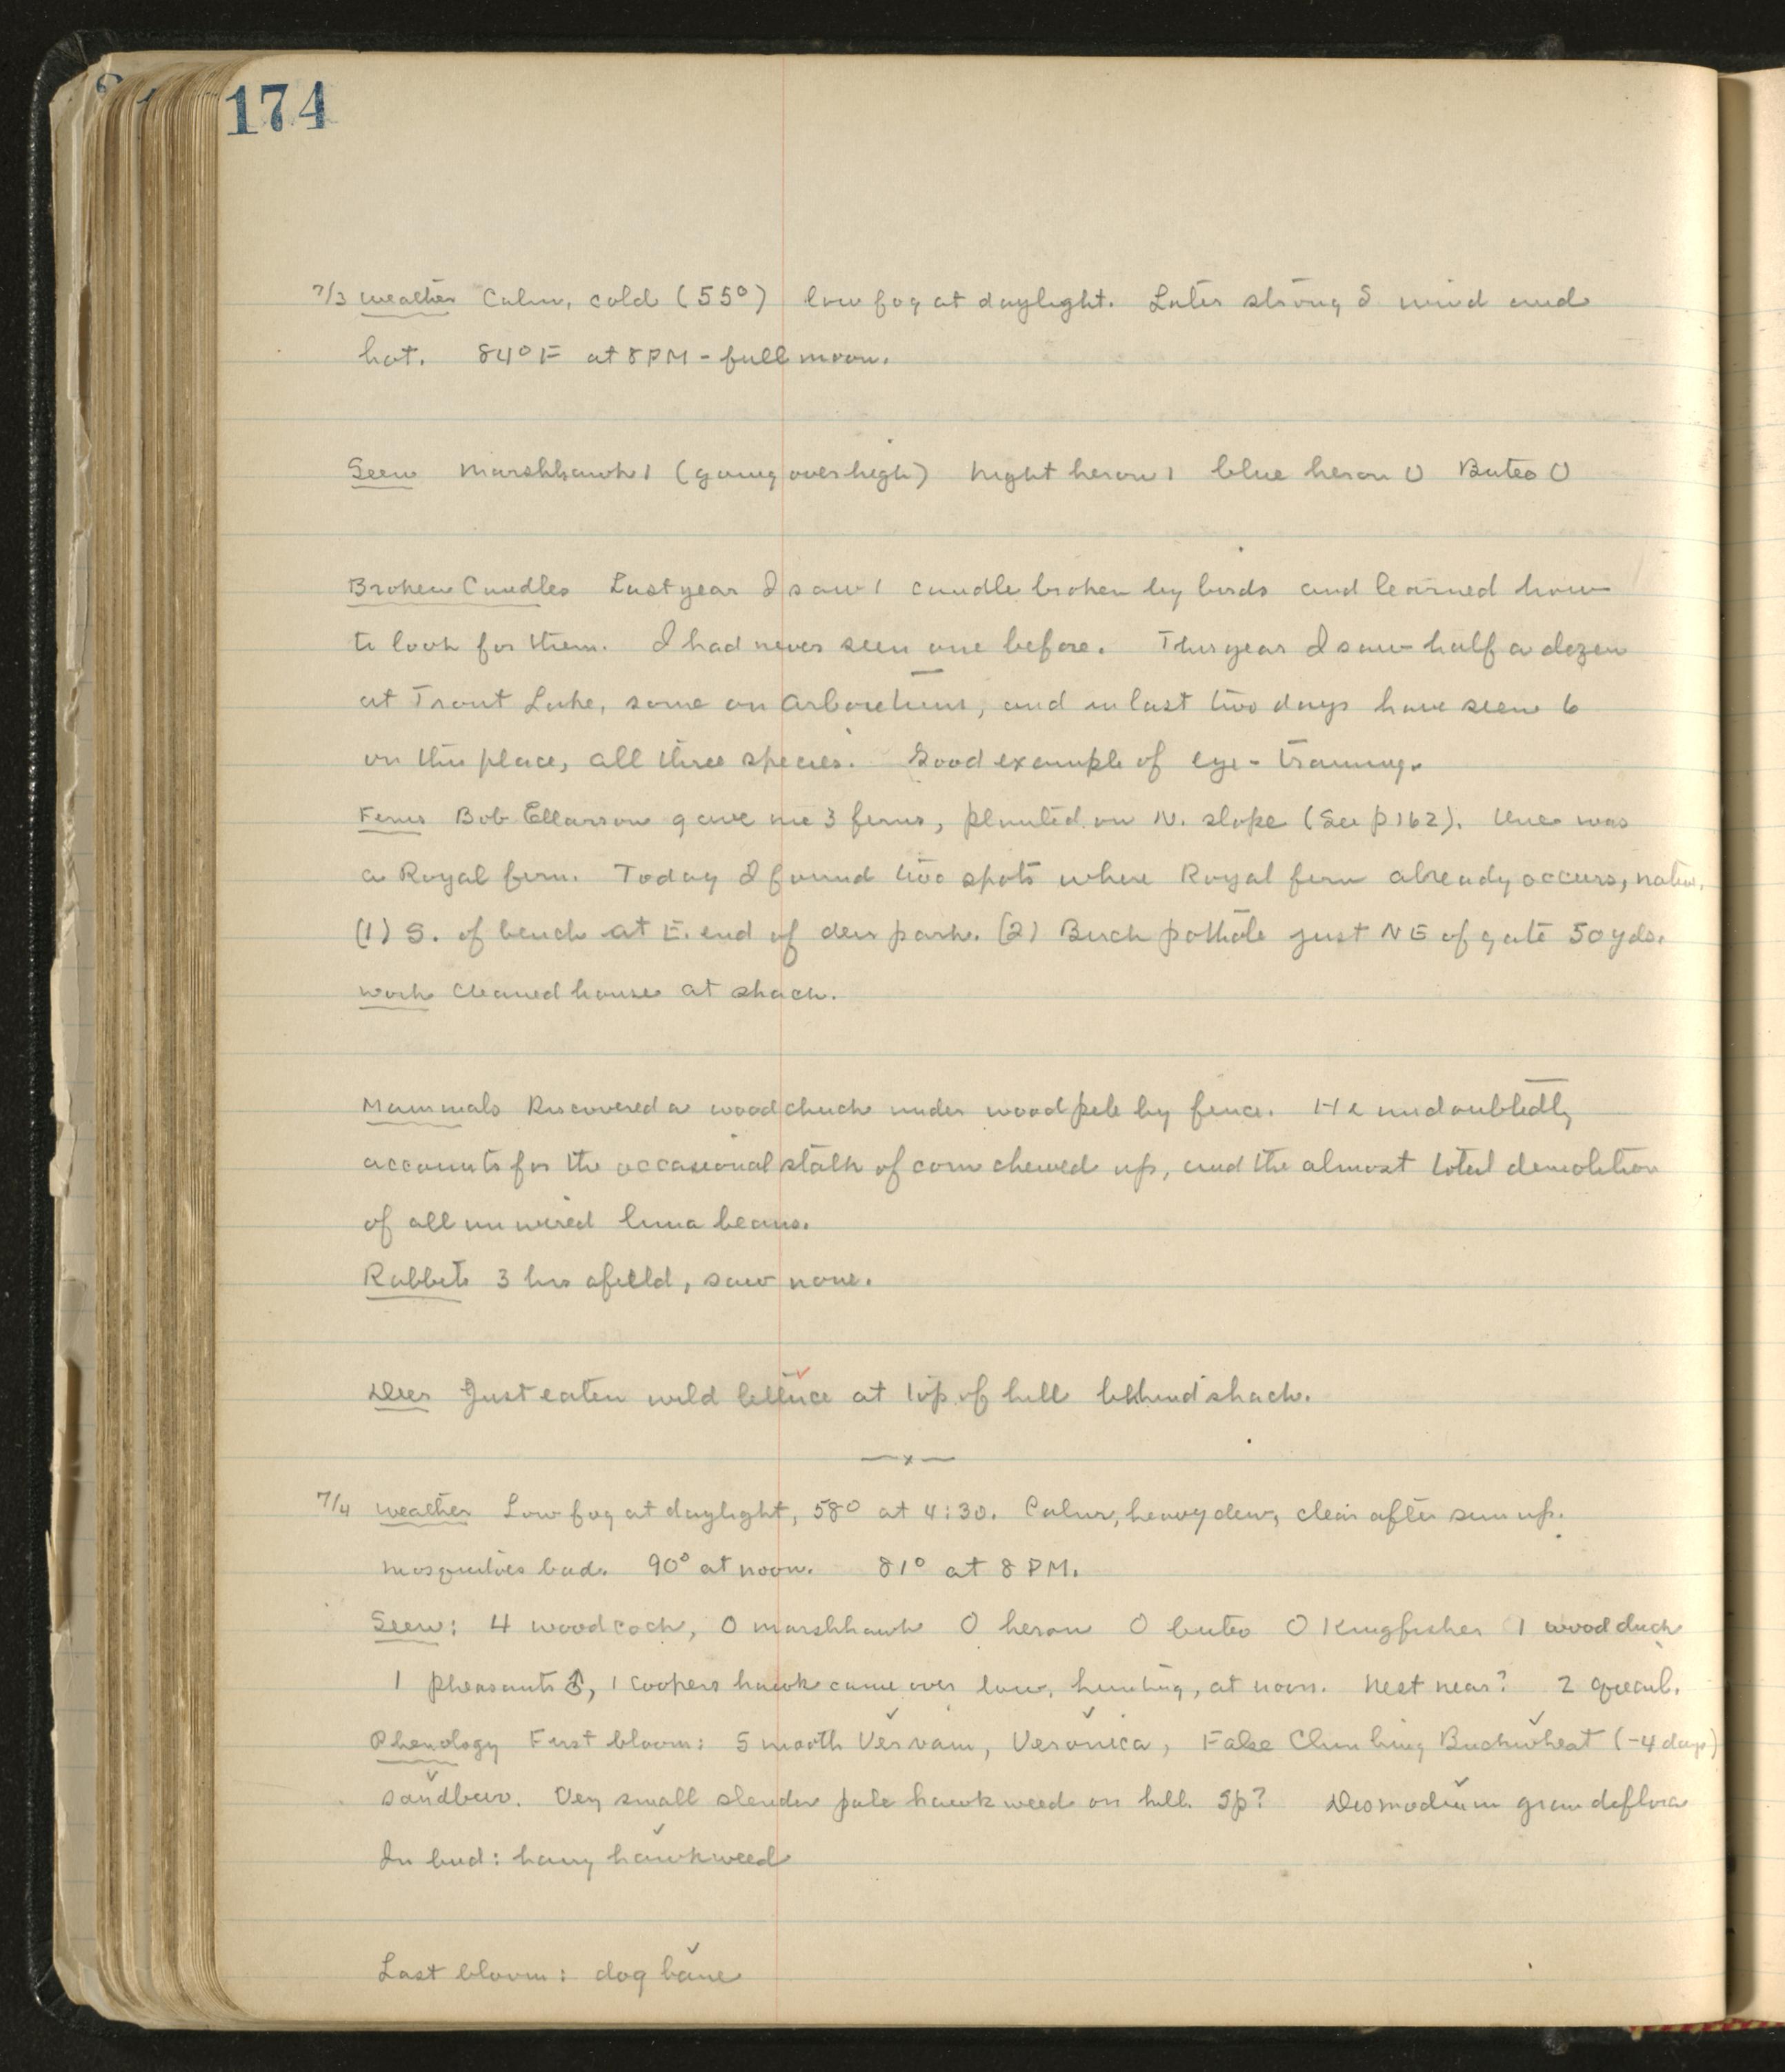 174
7/3 Weather Calm, cold (55°) low fog at daylight. Later strong S wind and
hot. 84°F at 8PM - full moon.
Seen Marshhawk 1 (going over high) Night heron 1 blue heron 0 Buteo 0
Broken Candles Last year I saw 1 candle broken by birds and learned how
to look for them. I had never seen one before. This year I saw half a dozen
at Trout Lake, some on Arboretum, and in last two days have seen 6
on this place, all three species. Good example of eye-training.
Ferns Bob Ellarson gave me 3 ferns, planted on N. slope (See p 162). One was
a Royal fern. Today I found two spots where Royal fern already occurs, native.
(1) S. of bench at E. end of deer park. (2) Birch pothole just NE of gate 50 yds.
Work Cleaned house at shack.
Mammals Discovered a woodchuck under woodpile by fence. He undoubtedly
accounts for the occasional stalk of corn chewed up, and the almost total demolition
of all unwired lima beans.
Rabbits 3 hrs afield, saw none.
Deer Just eaten wild lettuce at top of hill behind shack.
—x—
7/4 Weather Low fog at daylight, 58° at 4:30. Calm, heavy dew, clear after sun up.
Mosquitoes bad. 90° at noon. 81° at 8 PM.
Seen: 4 woodcock, 0 marshhawk 0 heron 0 buteo 0 Kingfisher 1 wood duck
1 pheasants ♂, 1 Coopers hawk came over low, hunting, at noon. Nest near? 2 quail.
Phenology First bloom: Smooth Vervain, Veronica, False Climbing Buckwheat (-4 days)
sandbur. Very small slender pale hawkweed on hill. Sp? Desmodium grandeflora
In bud: hairy hawkweed
Last bloom: dog bane